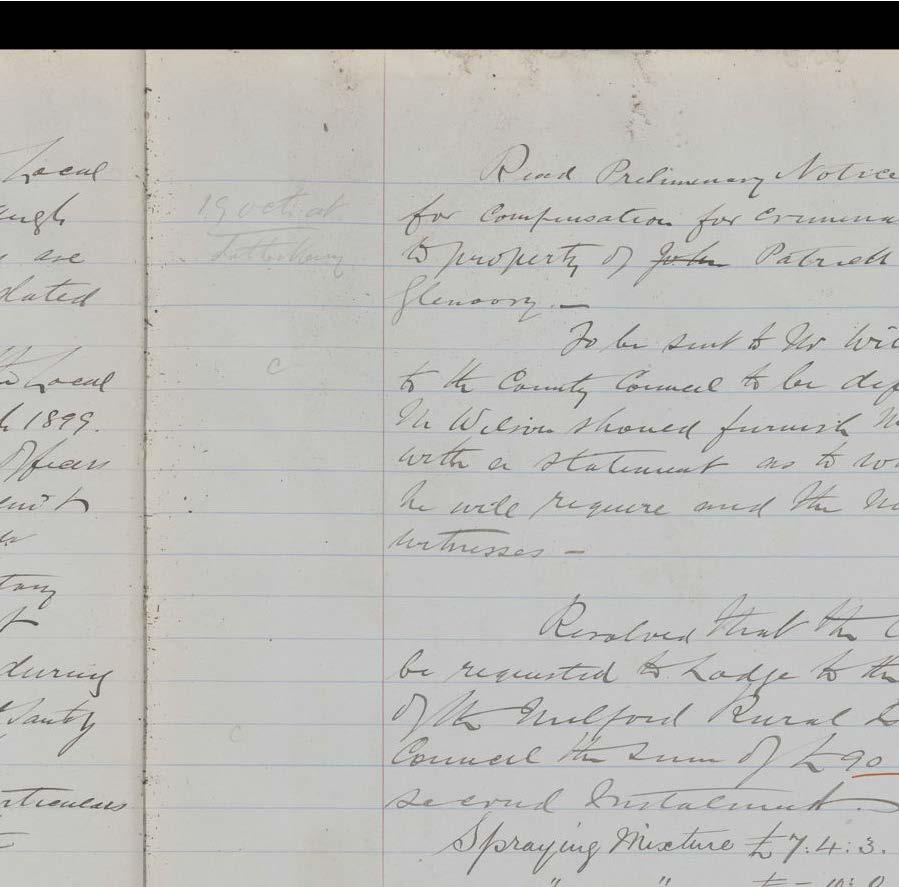 Local
ugh
are
dated
Local
1899.
Officers
during
rticulars
19 Oct. at
Letterkenny
Read Preliminary Notice
for Compensation for Crimina
to property of John Patrick
Glenoory. —
To be sent to Mr Wil
to the County Council to be def
Mr Wilson should furnish M
with a statement as to w
he will require and the n
witnesses —
Resolved that the C
be requested to Lodge to the
of the Milford Rural D
Council the sum of £90
second Instalment. —
Spraying Mixture £7:4:3.
" "